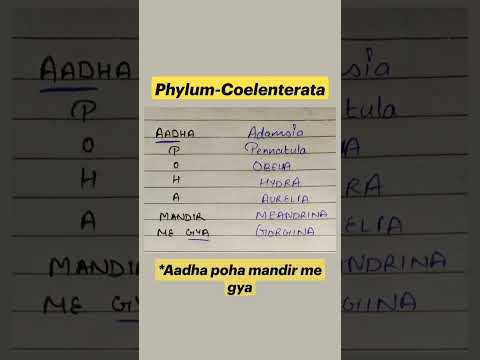 Phylum-Coelenterata
AADHA Adamsia
P Pennatula
O OBELIA
H HYDRA
A AURELIA
MANDIR MEANDRINA
ME GYA GORGIINA
*Aadha poha mandir me
gya